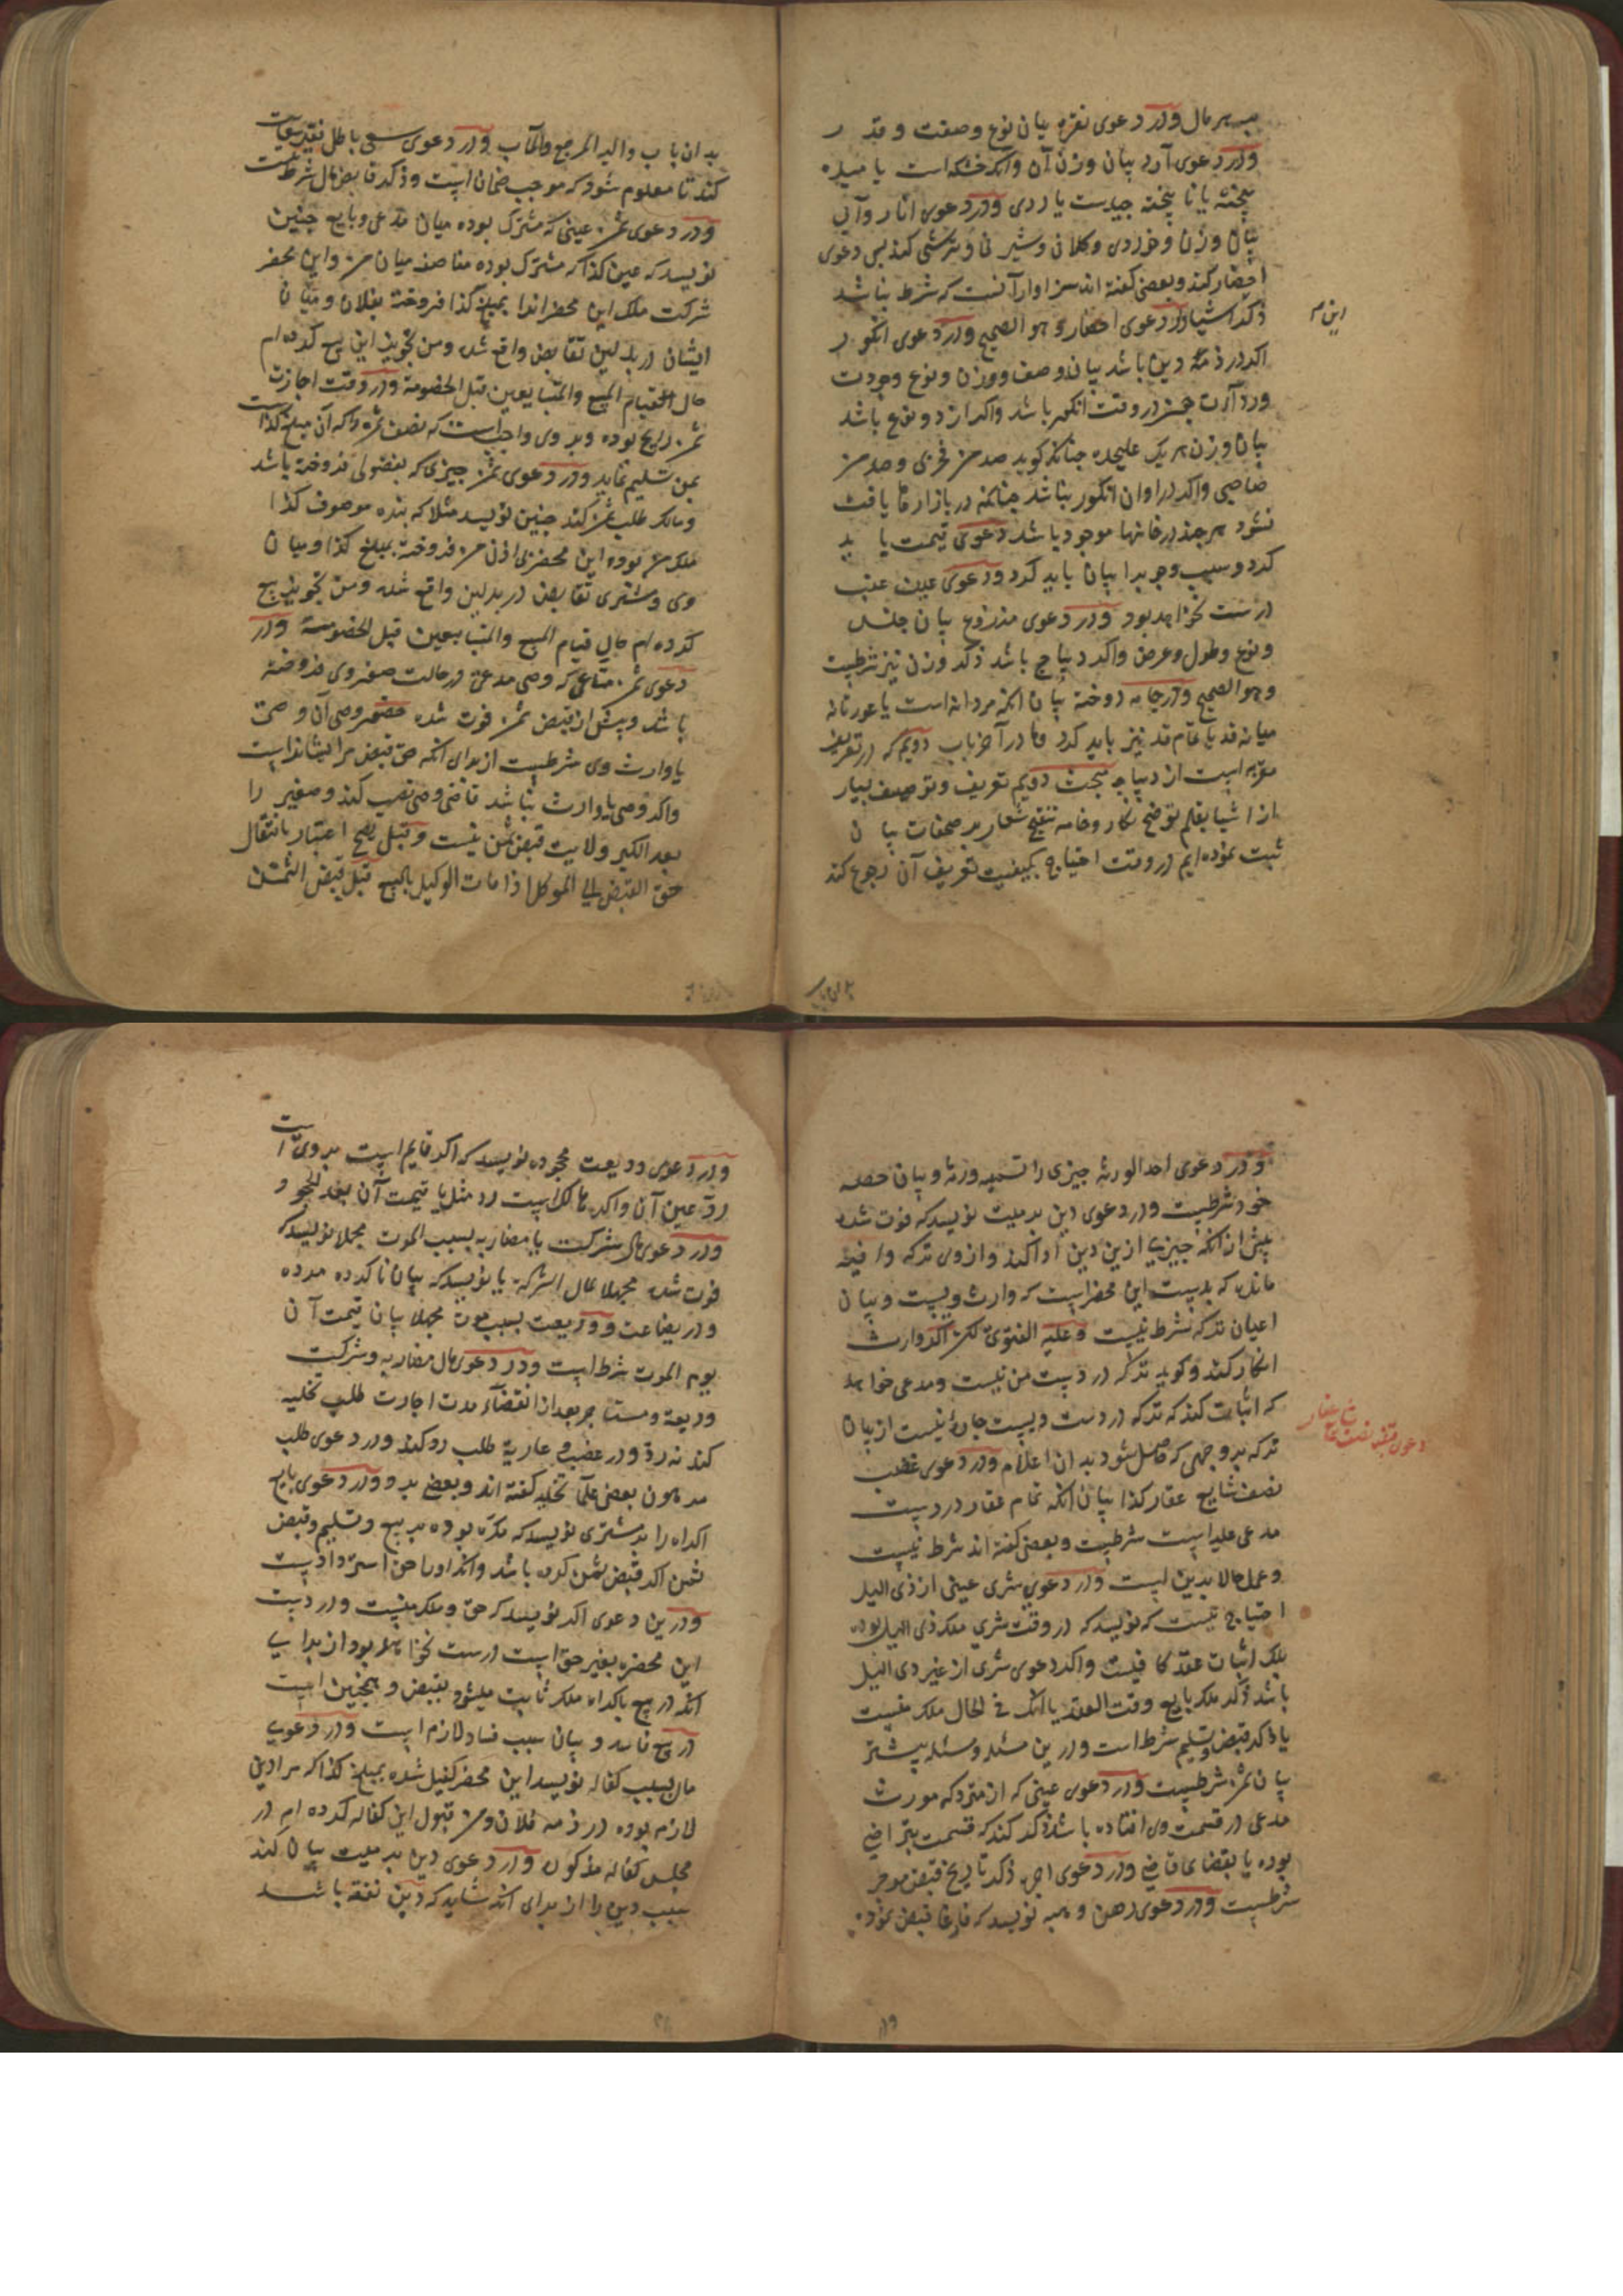 بیان وزن آن وانکه خشک است یا میده
ودر دعوی نقره بیان نوع وصفت و قدر
پخته یا نا پخته جیدست یا ردی ودر دعوی انار وآبی
بیان وزن وخوردی وکلانی وشیرنی وترشی کند پس دعوی
احضار کند وبعضی گفته اند سزاوار آنست که شرط نباشد
این
ذکر اشیا ودر دعوی احضار وهو الصحیح ودر دعوی انکور
اکر در ذمه دین باشد بیان وصف ووزن ونوع وجودت
وردائت در وقت انکور باشد واکر از دو نوع باشد
بیان وزن هر یک علیحده چنانکه کوید صد من فخری وصد من
واکر در اوان انکور نباشد چنانکه در بازارها یافت
نشود هر چند در خانها موجود باشد دعوی قیمت باید
کرد وسبب وجوب را بیان باید کرد ودر دعوی عین عنب
درست نخواهد بود ودر دعوی مذروع بیان جنس
ونوع وطول وعرض واکر دیباج باشد ذکر وزن نیز شرطست
وهو الصحیح ودر جامه دوخته بیان انکه مردانه است یا عورتانه
میانه قد یا تمام قد نیز باید کرد وما در آخر باب دویم که در تعریف
است از دیباجه مبحث دویم تعریف وتوصیف بسیار
از اشیا بقلم توضیح نکار وخامه تنقیح شعار بر صحفات بیان
ثبت نموده ایم در وقت احتیاج بکیفیت تعریف آن رجوع کند
بدان باب والیه المرجع والمآب ودر دعوی سعی باطل
کند تا معلوم شود که موجب ضمان است وذکر قابض مال شرطست
ودر دعوی ثمن عینی که مشترک بوده میان مدعی وبایع چنین
نویسد که عین کذا که مشترک بوده مناصفه میان من واین محضر
شرکت ملک این محضر اندا بمبلغ کذا فروخته بفلان ومیان
ایشان در بدلین تقابض واقع شده ومن تجویز این بیع کرده ام
حال قیام المبیع والمتبایعین قبل الخصومة ودر وقت اجازت
ثمن رایج بوده وبر وی واجب است که نصف ثمن را که آن مبلغ کذاست
بمن تسلیم نماید ودر دعوی ثمن چیزی که بفضولی فروخته باشد
ومالک طلب ثمن کند چنین نویسد مثلا که بنده موصوف کذا
ملک من بوده این محضر بی اذن من فروخته بمبلغ کذا ومیان
وی ومشتری تقابض در بدلین واقع شده ومن تجویز بیع
کرده ام حال قیام المبیع والمتبایعین قبل الخصومة ودر
دعوی ثمن متاعی که وصی مدعی در حالت صغر وی فروخته
باشد وپیش از قبض ثمن فوت شده حضور وصی آن وصی
یا وارث وی شرطست از برای انکه حق قبض مر ایشانراست
واکر وصی یا وارث نباشد قاضی وصی نصب کند وصغیر را
بعد الکبر ولایت قبض ثمن نیست وقیل یصح اعتبار بانتقال
حق القبض الی الموکل اذا مات الوکیل بالبیع قبل قبض الثمن
ودر دعوی احد الورثه چیزی را تسمیه ورثه وبیان حصه
خود شرطست ودر دعوی دین بر میت نویسد که فوت شده
پیش از انکه چیزی ازین دین ادا کند واز وی ترکه وافیه
مانده که بدست این محضر است که وارث ویست وبیان
اعیان ترکه شرط نیست وعلیه الفتوی لکن اکر وارث
انکار کند وکوید ترکه در دست من نیست ومدعی خواهد
که اثبات کند که ترکه در دست ویست چاره نیست از بیان
ترکه بر وجهی که حاصل شود بدان اعلام ودر دعوی غصب
نصف شایع عقار کذا بیان انکه تمام عقار در دست
مدعی علیه است شرطست وبعضی گفته اند شرط نیست
وعمل حالا بدین است ودر دعوی شری عینی از ذی الید
احتیاج نیست که نویسد که در وقت شری ملک ذی الید بوده
بلک اثبات عقد کافیست واکر دعوی شری از غیر ذی الید
باشد ذکر ملک بایع وقت العقد یا انک فی الحال ملک منست
یا ذکر قبض وتسلیم شرط است ودرین مسئله ومسئله پیشتر
بیان ثمن شرطست ودر دعوی عینی که از متروکه مورث
مدعی در قسمت وی افتاده باشد ذکر کند که قسمت بتراضی
بوده یا بقضای قاضی ودر دعوی اجر ذکر تاریخ قبض موجر
شرطست ودر دعوی رهن وهبه نویسد که فارغا قبض نموده
ودر دعوی ودیعت مجحوده نویسد که اکر قایم است بر وی است
رد عین آن واکر هالک است رد مثل یا قیمت آن بعد الجحود
ودر دعوی مال شرکت یا مضاربه بسبب الموت مجهلا نویسد که
فوت شده مجهلا لمال الشرکة یا نویسد که بیان نا کرده مرده
ودر بضاعت وودیعت بسبب موت مجهلا بیان قیمت آن
یوم الموت شرط است ودر دعوی مال مضاربه وشرکت
ودیعة ومستاجر بعد از انقضاء مدت اجارت طلب تخلیه
کند نه رد ودر غصب وعاریة طلب رد کند ودر دعوی طلب
مرهون بعضی علما تخلیه گفته اند وبعضی رد ودر دعوی بایع
اکراه را بر مشتری نویسد که مکره بوده بر بیع وتسلیم وقبض
ثمن اکر قبض ثمن کرده باشد وانکه اورا حق استرداد است
ودرین دعوی اکر نویسد که حق وملک منست ودر دست
این محضر بغیر حق است درست نخواهد بود از برای
انکه در بیع باکراه ملک ثابت میشود بقبض وهمچنین است
در بیع فاسد وبیان سبب فساد لازم است ودر دعوی
مال بسبب کفاله نویسد این محضر کفیل شده بمبلغ کذا که مرا دین
لازم بوده در ذمه فلان ومن قبول این کفاله کرده ام در
مجلس کفاله مذکور ودر دعوی دین بر میت بیان کند
سبب دین را از برای انکه شاید که دین نفقه باشد